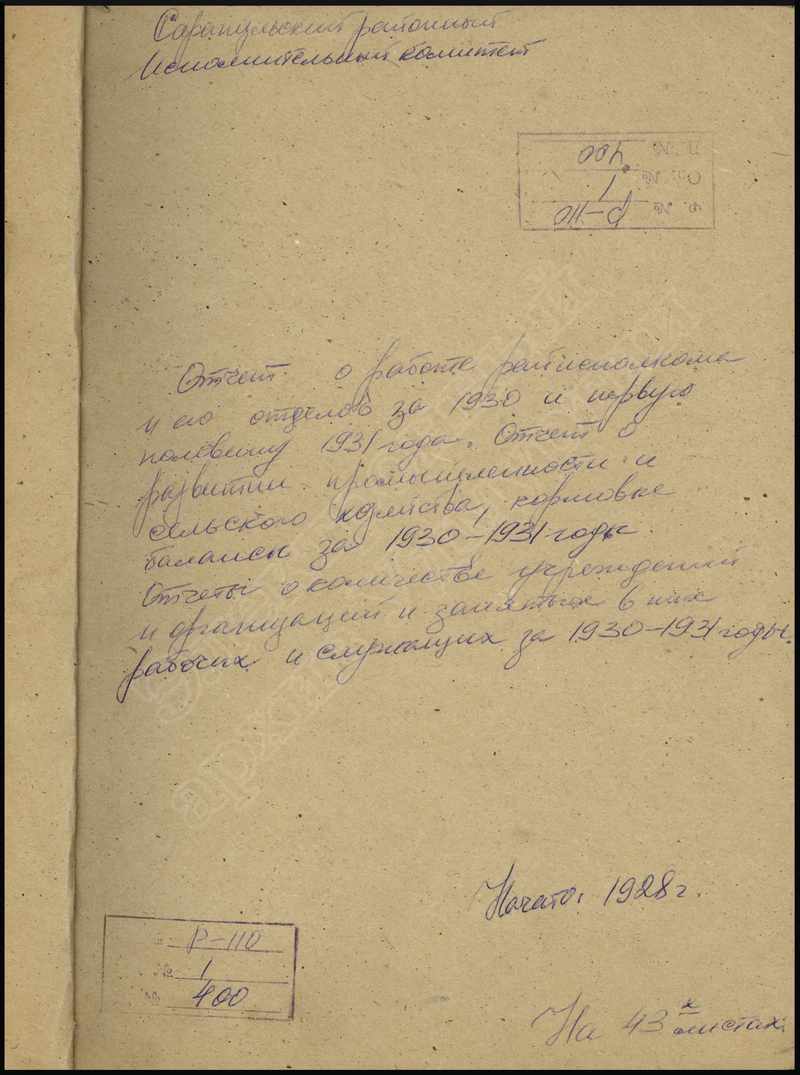 Сарапульский районный
Исполнительный комитет
Д. № 400
Оп. № 1
Ф. № Р-110
Отчет о работе райисполкома
и его отделов за 1930 и первую
половину 1931 года. Отчет о
развитии промышленности и
сельского хозяйства, кормовые
балансы за 1930-1931 годы
Отчеты о количестве учреждений
и организаций и занятых в них
рабочих и служащих за 1930-1931 годы.
Начато: 1928 г.
Р-110
№ 1
№ 400
На 43х листах